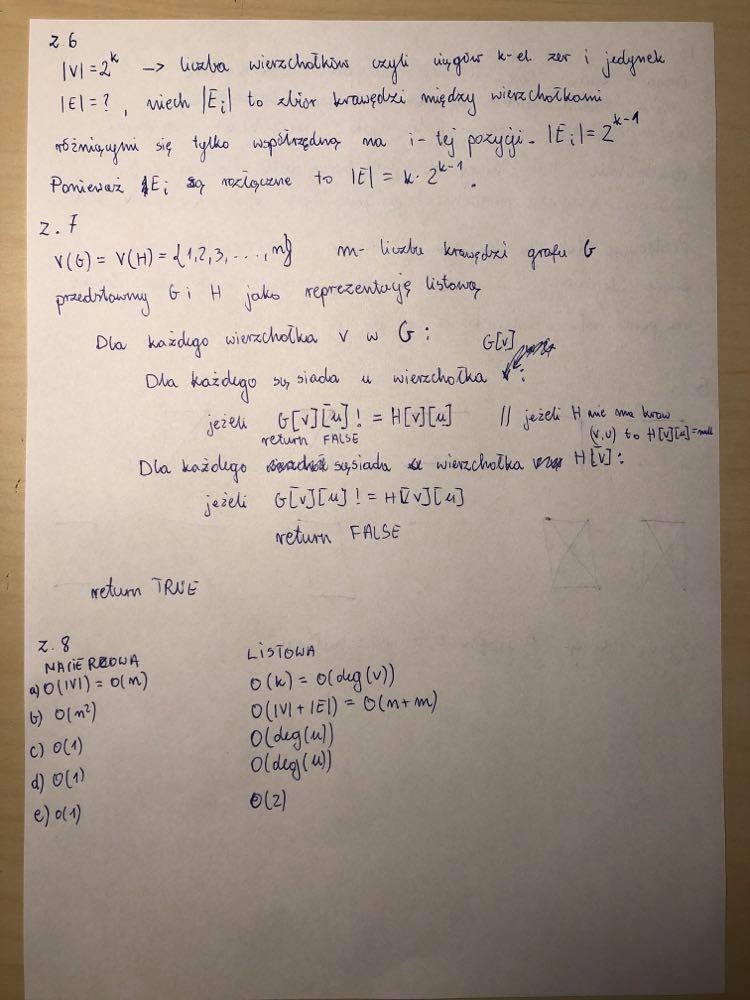 z.6
|V|=2^k -> liczba wierzchołków czyli ciągów k-el. zer i jedynek
|E|=?, niech |E_i| to zbiór krawędzi między wierzchołkami
różniącymi się tylko współrzędną na i-tej pozycji. |E_i|=2^{k-1}
Ponieważ E_i są rozłączne to |E|=k·2^{k-1}.
z.7
V(G)=V(H)={1,2,3,...,n} m- liczba krawędzi grafu G
przedstawmy G i H jako reprezentację listową
Dla każdego wierzchołka v w G:
G[v]
Dla każdego sąsiada u wierzchołka :
jeżeli G[v][u] != H[v][u] // jeżeli H nie ma kraw
return FALSE (v,u) to H[v][u]=null
Dla każdego sąsiada wierzchołka H[v]:
jeżeli G[v][u] != H[v][u]
return FALSE
return TRUE
z.8
MACIERZOWA LISTOWA
a) O(|V|)=O(n) O(k)=O(deg(v))
b) O(n²) O(|V|+|E|)=O(n+m)
c) O(1) O(deg(u))
d) O(1) O(deg(u))
e) O(1) O(2)